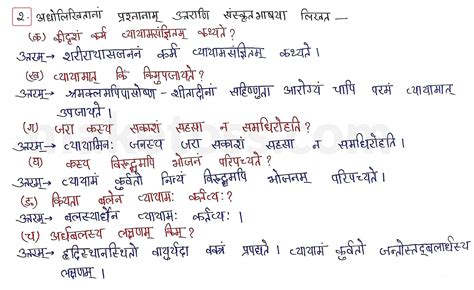 2. अधोलिखितानां प्रश्नानाम् उत्तराणि संस्कृतभाषया लिखत —
(क) कीदृशं कर्म व्यायामसंज्ञितम् कथ्यते ?
उत्तरम् → शरीरायासजननं कर्म व्यायामसंज्ञितम् कथ्यते ।
(ख) व्यायामात् किं किमुपजायते ?
उत्तरम् → श्रमक्लमपिपासोष्ण - शीतादीनां सहिष्णुता आरोग्यं चापि परमं व्यायामात्
उपजायते ।
(ग) जरा कस्य सकाशं सहसा न समधिरोहति ?
उत्तरम् → व्यायामिनः जनस्य जरा सकाशं सहसा न समधिरोहति ।
(घ) कस्य विरुद्धमपि भोजनं परिपच्यते ?
उत्तरम् → व्यायामं कुर्वतो नित्यं विरुद्धमपि भोजनम् परिपच्यते ।
(ङ) कियता बलेन व्यायामः कर्तव्यः ?
उत्तरम् → बलस्यार्धेन व्यायामः कर्तव्यः ।
(च) अर्धबलस्य लक्षणम् किम् ?
उत्तरम् → हृदिस्थानस्थितो वायुर्यदा वक्त्रं प्रपद्यते । व्यायामं कुर्वतो जन्तोस्तद्बलार्धस्य
लक्षणम् ।